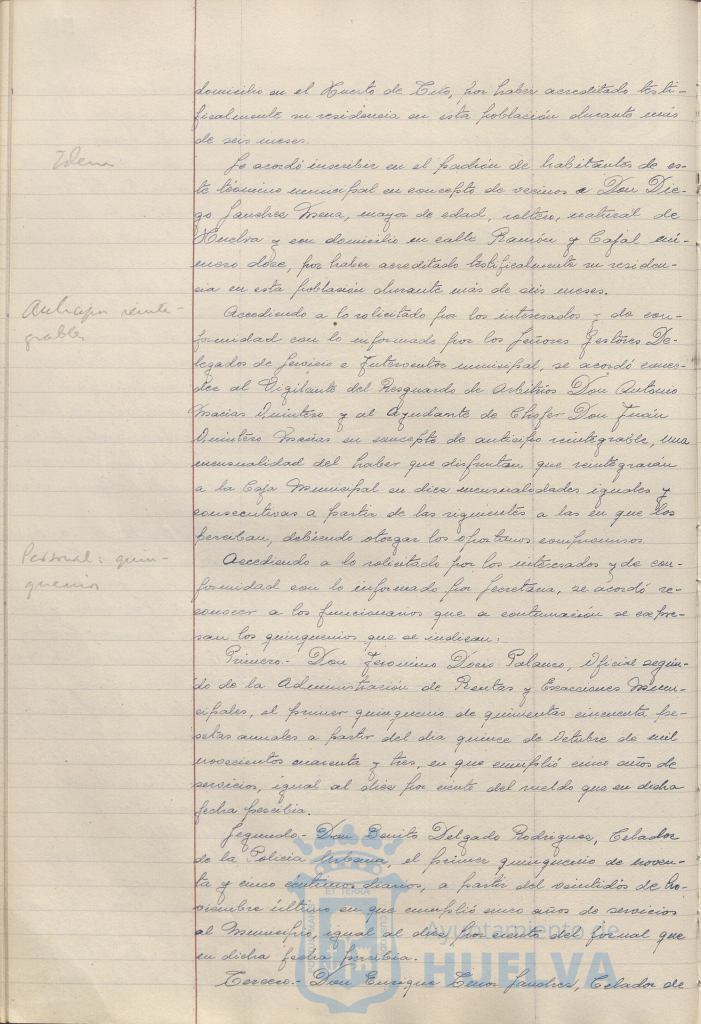 domicilio en el Huerto de Tito, por haber acreditado testi-
ficalmente su residencia en esta población durante más
de seis meses.
Idem
Se acordó inscribir en el padrón de habitantes de es-
te término municipal en concepto de vecinos a Don Die-
go Sanchez Mena, mayor de edad, soltero, natural de
Huelva y con domicilio en calle Ramón y Cajal nú-
mero doce, por haber acreditado testificalmente su residen-
cia en esta población durante más de seis meses.
Anticipos reinte-
grables
Accediendo a lo solicitado por los interesados y de con-
formidad con lo informado por los Señores Gestores De-
legados de Servicio e Interventor municipal, se acordó conce-
der al Vigilante del Resguardo de Arbitrios Don Antonio
Macias Quintero y al Ayudante de Chofer Don Juán
Quintero Macias en concepto de anticipo reintegrable, una
mensualidad del haber que disfrutan que reintegrarán
a la Caja Municipal en diez mensualidades iguales y
consecutivas a partir de las siguientes a las en que los
perciban, debiendo otorgar los oportunos compromisos.
Personal: quin-
quenios
Accediendo a lo solicitado por los interesados y de con-
formidad con lo informado por Secretaria, se acordó re-
conocer a los funcionarios que a continuación se expre-
san los quinquenios que se indican:
Primero.- Don Jeronimo Polanco, Oficial segun-
do de la Administración de Rentas y Exacciones Muni-
cipales, el primer quinquenio de quinientas cincuenta pe-
setas anuales a partir del dia quince de Octubre de mil
novecientos cuarenta y tres, en que cumplió cinco años de
servicios, igual al diez por ciento del sueldo que en dicha
fecha percibia.
Segundo.- Don Benito Delgado Rodriguez, Celador
de la Policia Urbana, el primer quinquenio de noven-
ta y cinco centimos diarios, a partir del veintidós de No-
viembre último en que cumplió cinco años de servicios
al Municipio, igual al diez por ciento del jornal que
en dicha fecha percibia.
Tercero.- Don Enrique Sanchez, Celador de
Ayuntamiento de
HUELVA